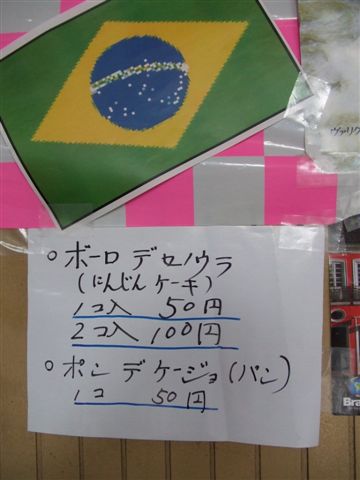 ヴァリグ
○ ボーロ デセノウラ
(にんじん ケーキ)
1コ入 50円
2コ入 100円
○ ポン デ ケージョ (パン)
1コ 50円
Bra